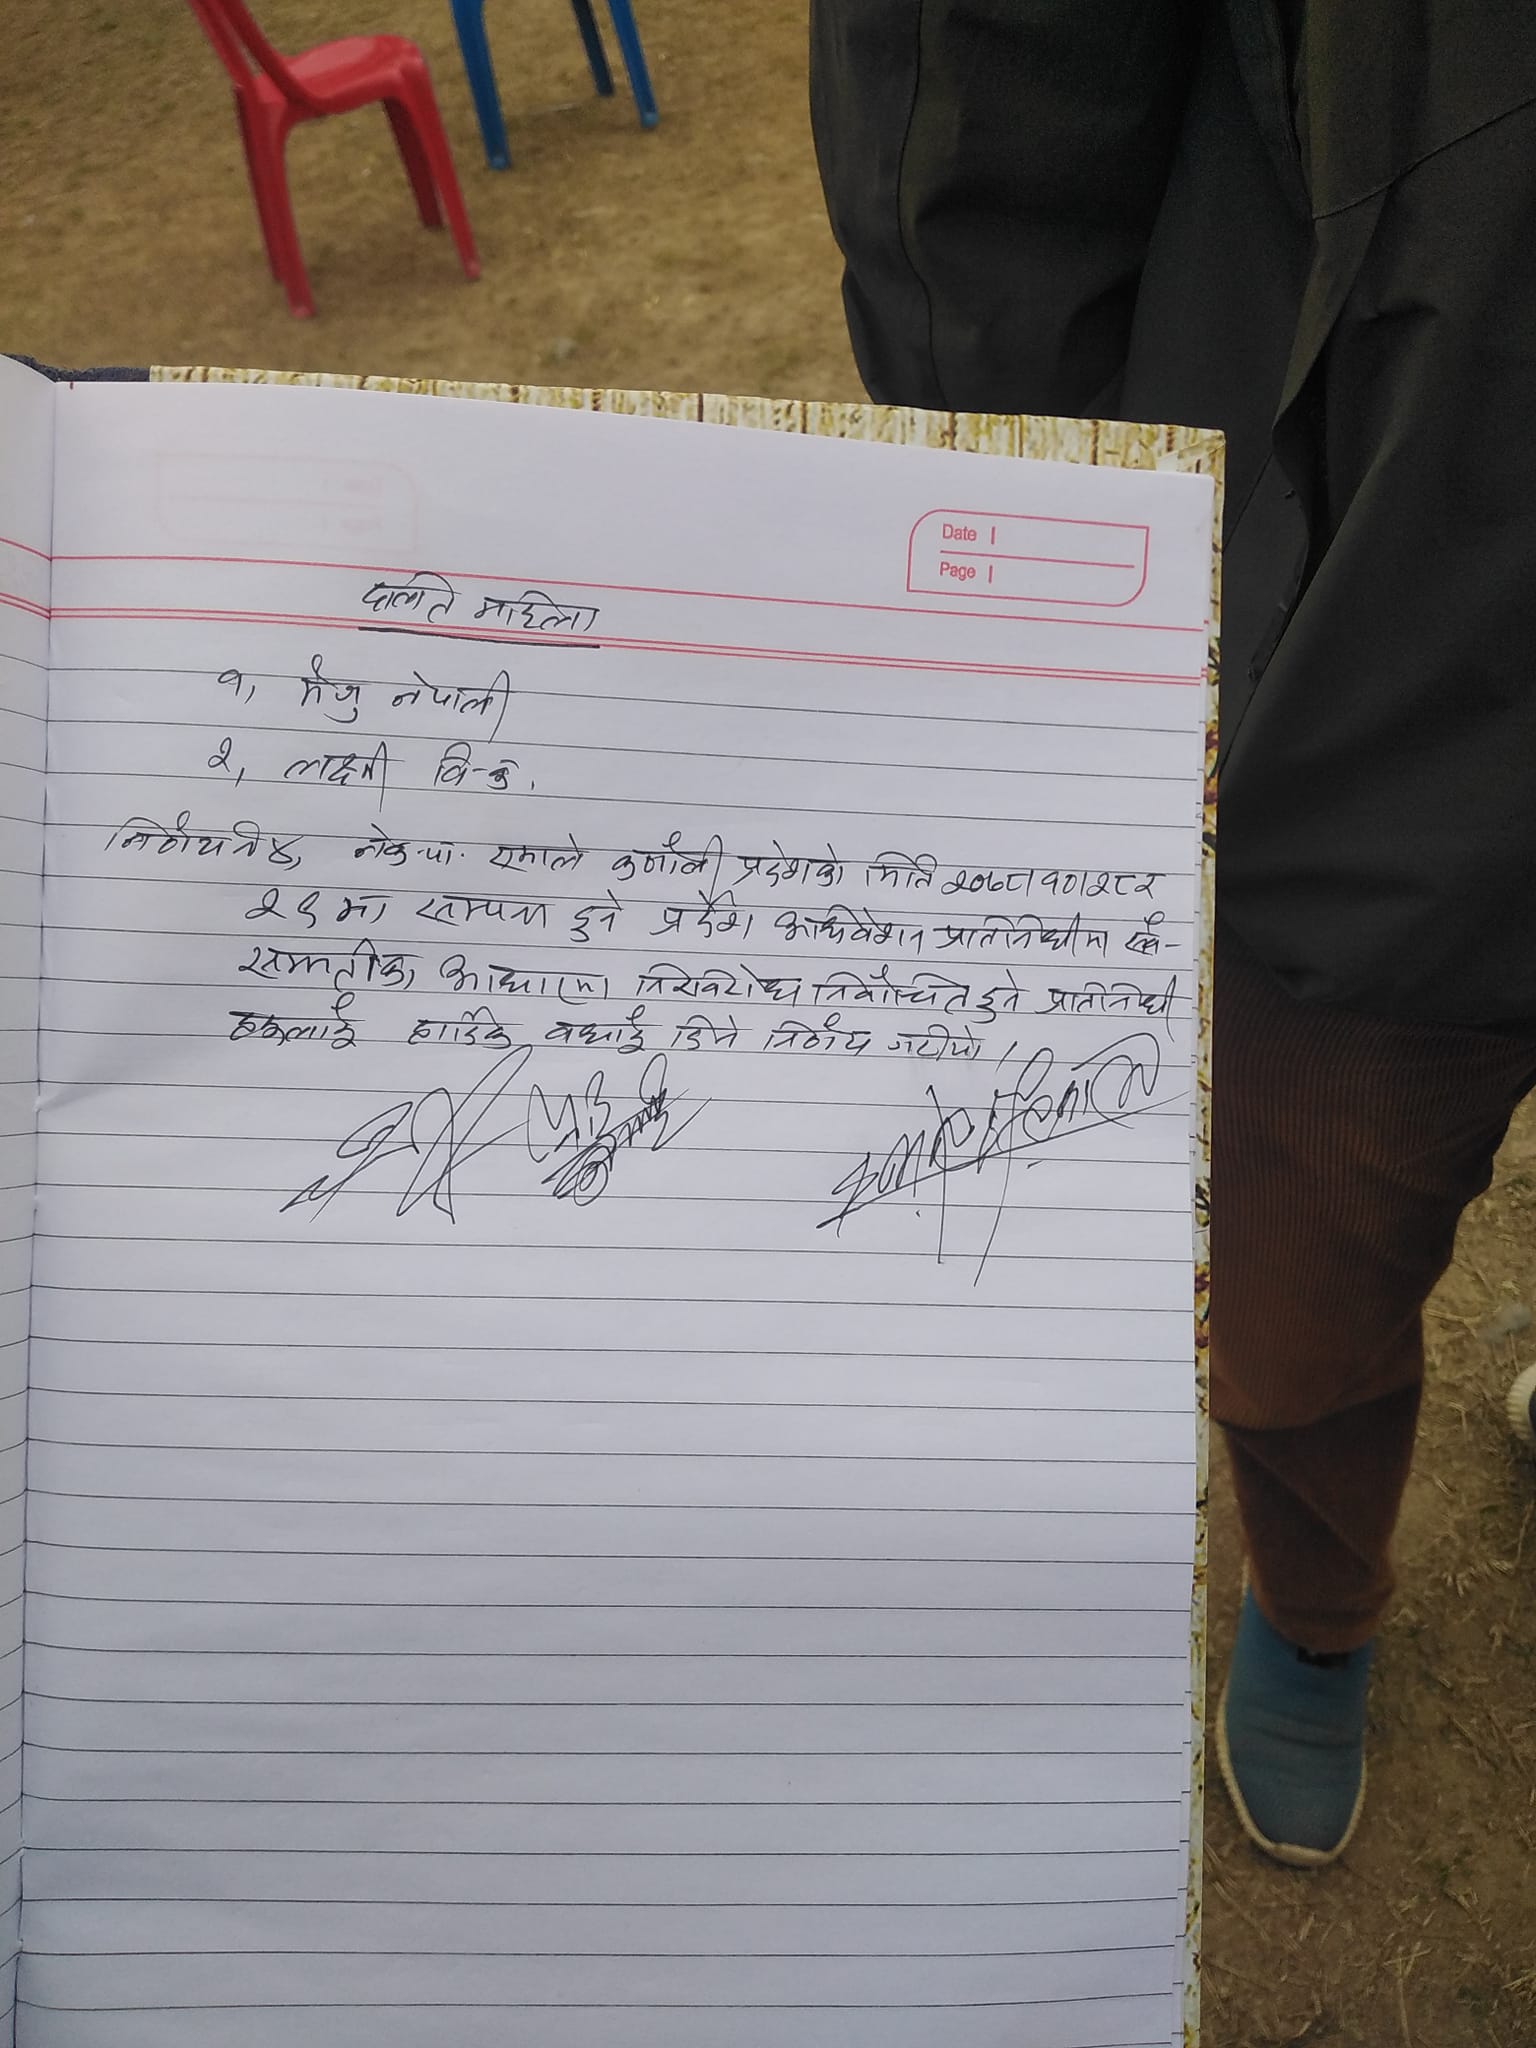 Date
Page
दलित महिला
१, मैजु नेपाली
२, लक्ष्मी वि.क.
निर्णय नं ४, नेकपा. एमाले कर्णाली प्रदेशको मिति २०७८।१०।२८ र
२९ मा सम्पन्न हुने प्रदेश अधिवेशन प्रतिनिधीमा सर्व-
सम्मतीका आधारमा निरविरोध निर्वाचित हुने प्रतिनिधी
हरूलाई हार्दिक वधाई दिने निर्णय गरीयो।